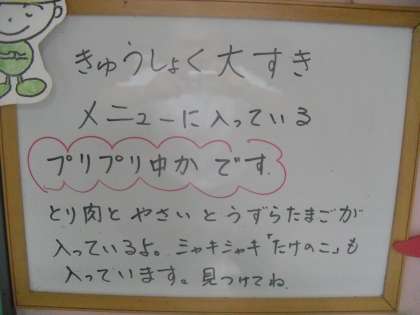 きゅうしょく大すき
メニューに入っている
プリプリ中か です.
とり肉と やさいと うずらたまごが
入っているよ。シャキシャキ「たけのこ」も
入っています。見つけてね.